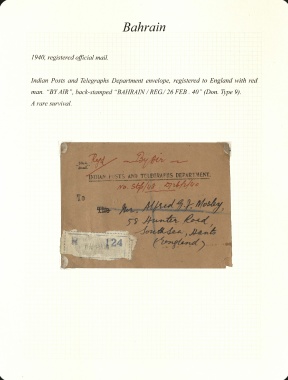 Bahrain
1940, registered official mail.
Indian Posts and Telegraphs Department envelope, registered to England with red
man. "BY AIR", back-stamped "BAHRAIN / REG / 26 FEB . 40" (Don. Type 9).
A rare survival.
By air
INDIAN POSTS AND TELEGRAPHS DEPARTMENT.
No.
To
Mr. Alfred G. J. Mosley,
58 Hunter Road,
Southsea, Hants
(England)
R 124